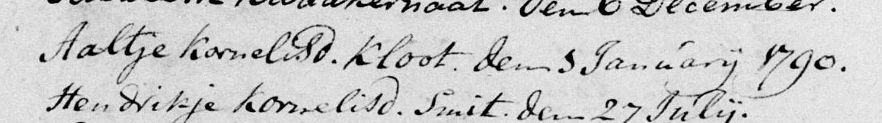 den 6 December.
Aaltje Kornelisd. Kloot. den 3 Januarij 1790.
Hendrikje Kornelisd. Smit. den 27 Julij.